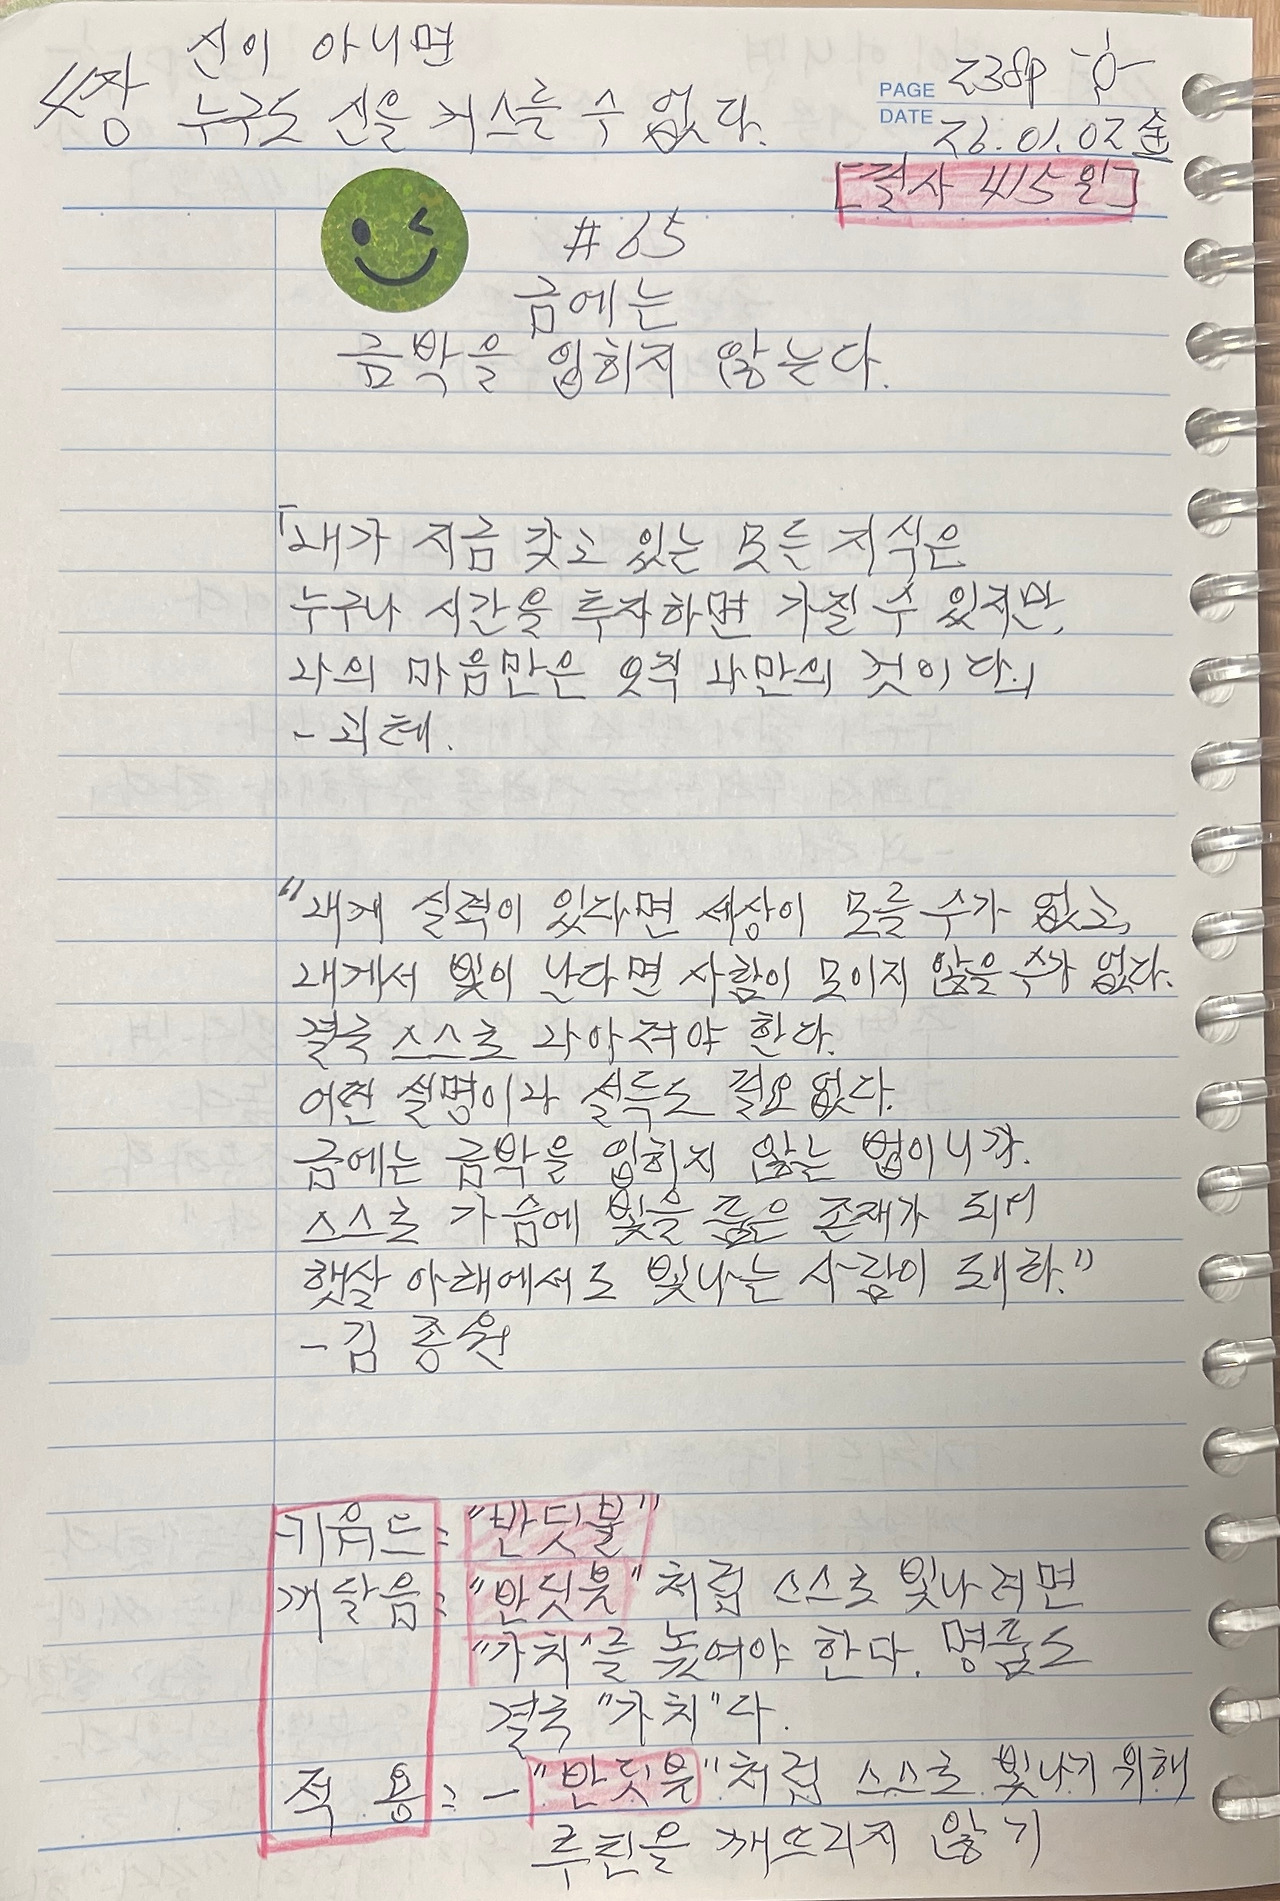 신이 아니면
4장 누구도 신을 거스를 수 없다.
PAGE 238p
DATE 26.01.02 金
[필사 415일]
#65
금에는
금박을 입히지 않는다.
「내가 지금 갖고 있는 모든 지식은
누구나 시간을 투자하면 가질 수 있지만,
나의 마음만은 오직 나만의 것이다.」
- 괴테.
"내게 실력이 있다면 세상이 모를 수가 없고,
내게서 빛이 난다면 사람이 모이지 않을 수가 없다.
결국 스스로 나아져야 한다.
어떤 설명이나 설득도 필요 없다.
금에는 금박을 입히지 않는 법이니까.
스스로 가슴에 빛을 품은 존재가 되어
햇살 아래에서도 빛나는 사람이 돼라."
- 김종원
키워드 = "반딧불"
깨달음 = "반딧붓"처럼 스스로 빛나려면
"가치"를 높여야 한다. 명품도
결국 "가치"다.
적용 = - "반딧붓"처럼 스스로 빛나기 위해
루틴을 깨뜨리지 않기